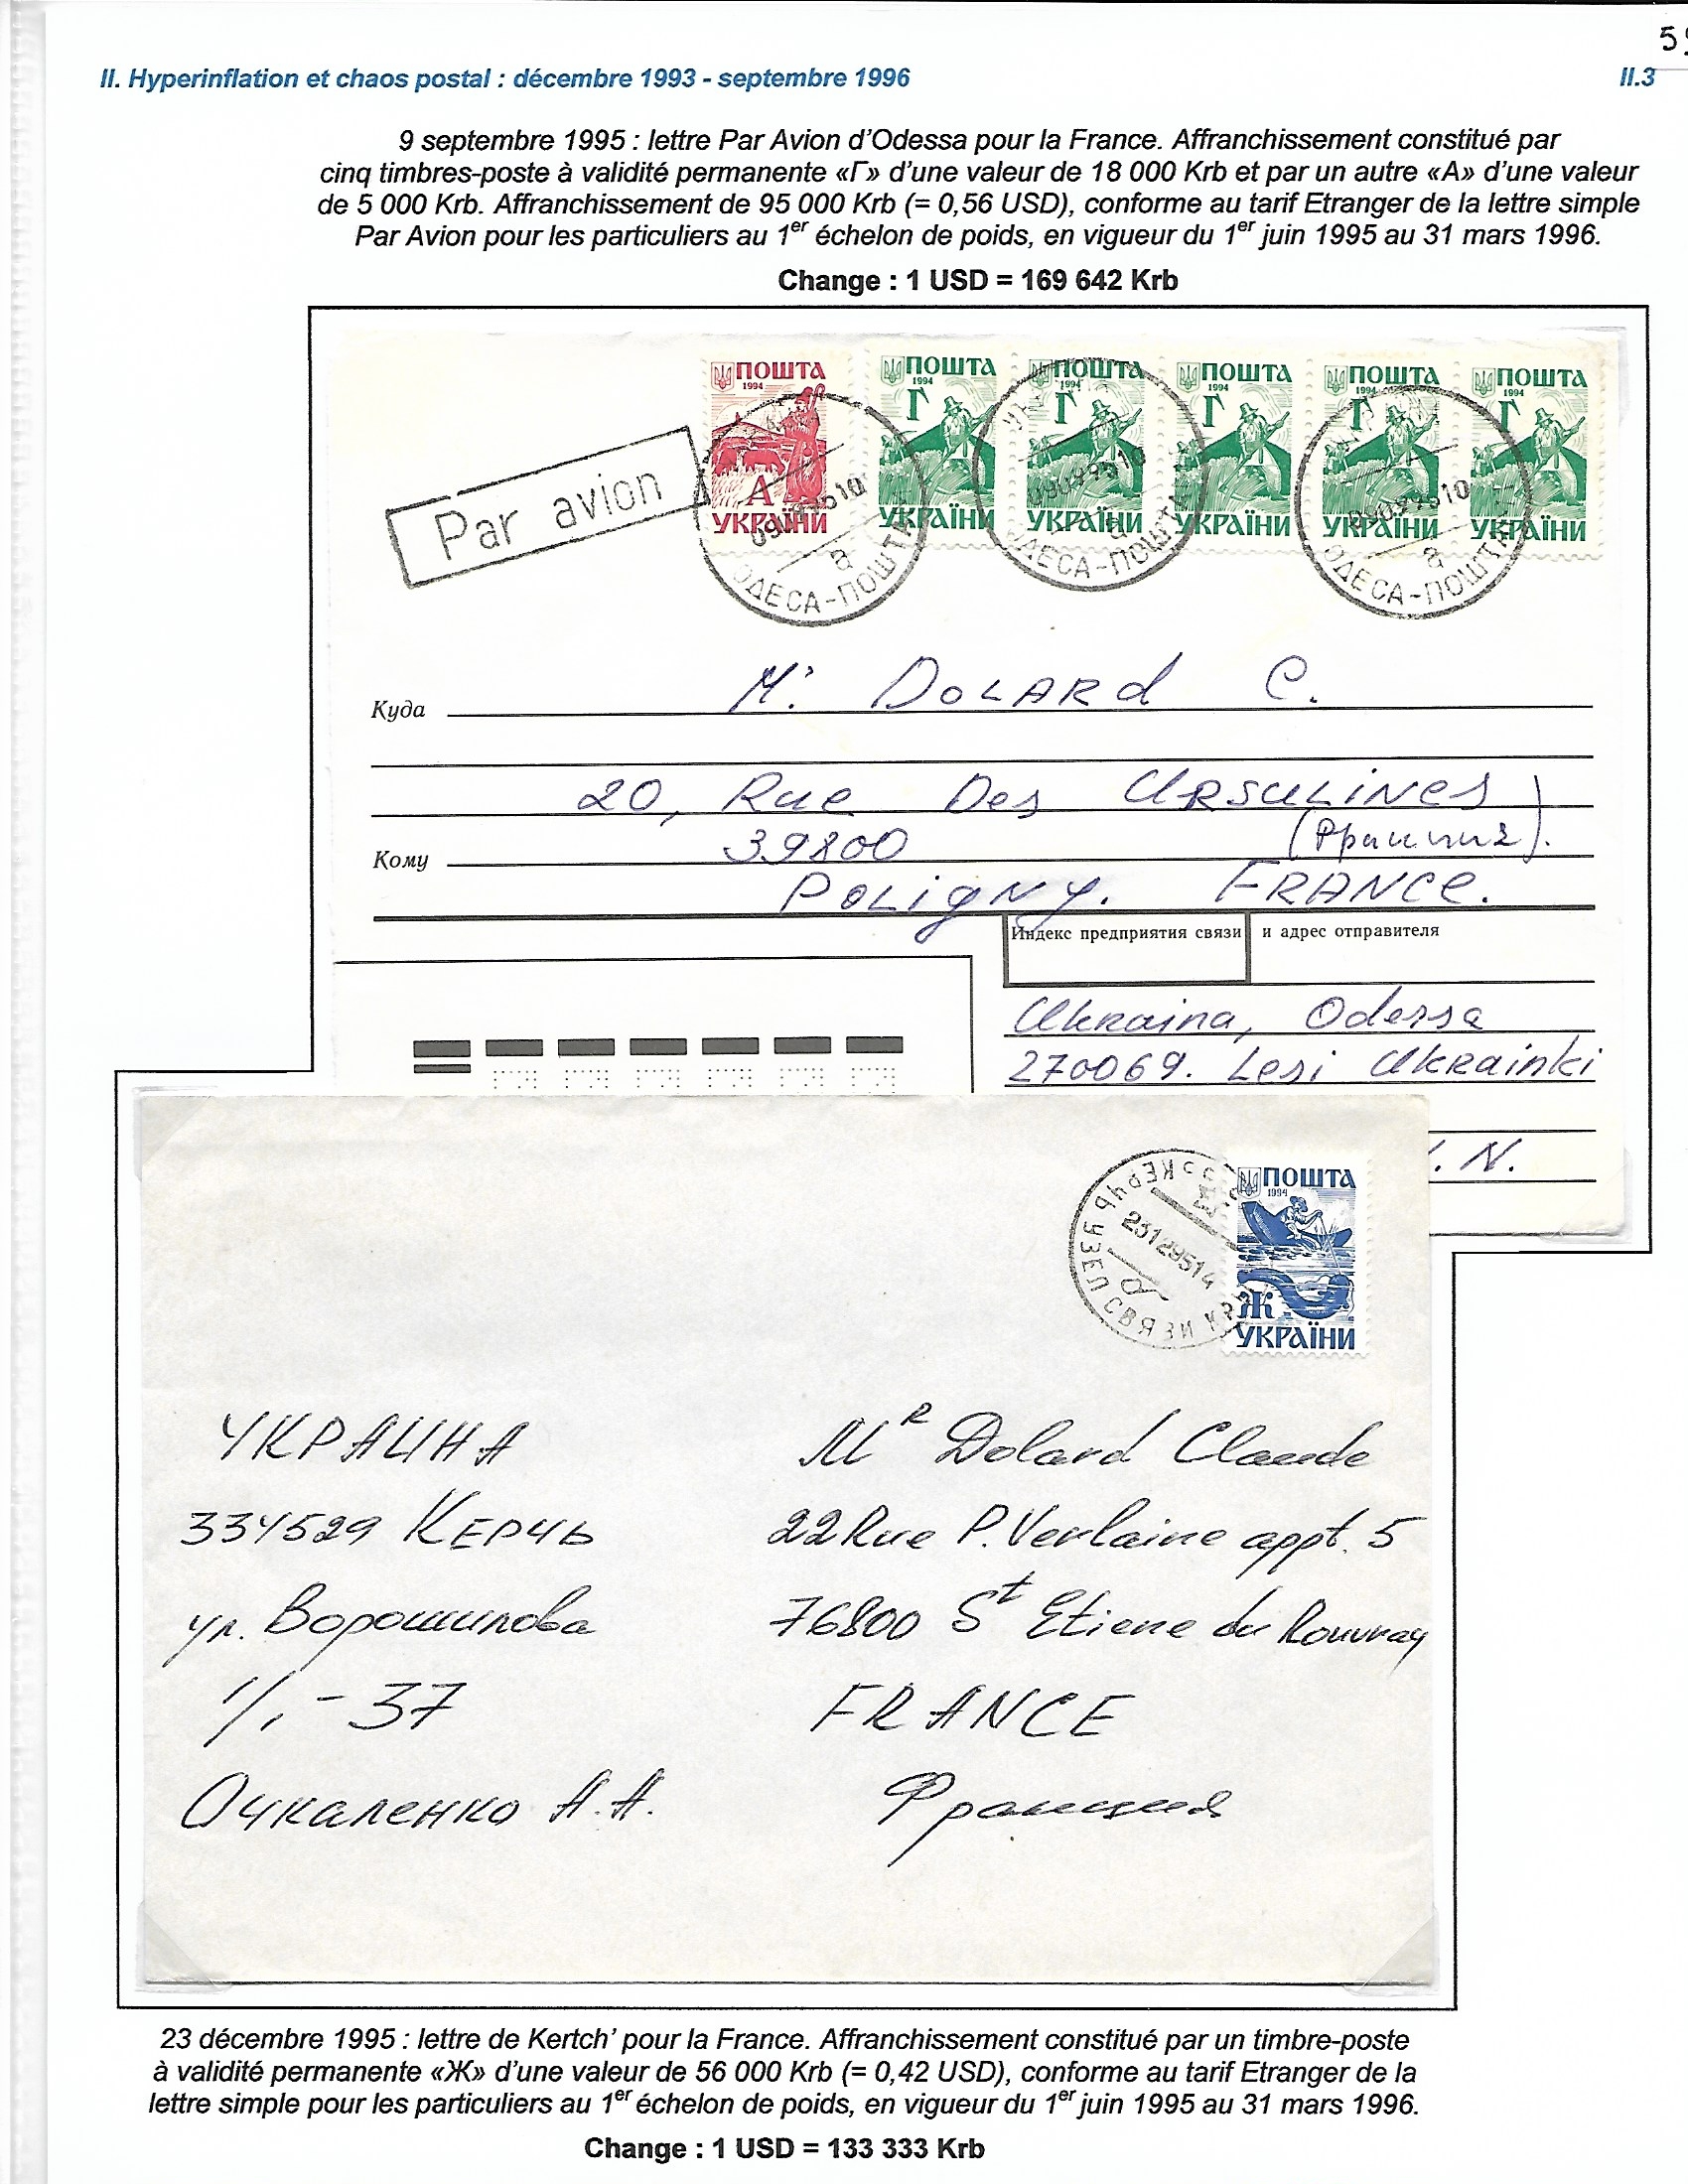 59
II. Hyperinflation et chaos postal : décembre 1993 - septembre 1996
II.3
9 septembre 1995 : lettre Par Avion d'Odessa pour la France. Affranchissement constitué par
cinq timbres-poste à validité permanente «Г» d'une valeur de 18 000 Krb et par un autre «А» d'une valeur
de 5 000 Krb. Affranchissement de 95 000 Krb (= 0,56 USD), conforme au tarif Etranger de la lettre simple
Par Avion pour les particuliers au 1er échelon de poids, en vigueur du 1er juin 1995 au 31 mars 1996.
Change : 1 USD = 169 642 Krb
Par avion
ПОШТА
1994
А
УКРАЇНИ
ПОШТА
1994
Г
УКРАЇНИ
ПОШТА
1994
Г
УКРАЇНИ
ПОШТА
1994
Г
УКРАЇНИ
ПОШТА
1994
Г
УКРАЇНИ
ПОШТА
1994
Г
УКРАЇНИ
а
ОДЕСА-ПОШТА
ОДЕСА-ПОШТА
09099510
а
ОДЕСА-ПОШТА
Куда
Mr DOLARd C.
20, Rue Des URSULINES
39800 (Франция).
Кому
POLIGNY. FRANCE.
Индекс предприятия связи и адрес отправителя
Ukraina, Odessa
270069. Lesi Ukrainki
. N.
КЕРЧЬ УЗЕЛ СВЯЗИ
23129514
ПОШТА
1994
Ж
УКРАЇНИ
УКРАИНА
334529 КЕРЧЬ
ул. Ворошилова
1/1-37
Очкаленко А.А.
MR Dolard Claude
22 Rue P. Verlaine appt. 5
76800 St Etiene du Rouvray
FRANCE
Франция
23 décembre 1995 : lettre de Kertch' pour la France. Affranchissement constitué par un timbre-poste
à validité permanente «Ж» d'une valeur de 56 000 Krb (= 0,42 USD), conforme au tarif Etranger de la
lettre simple pour les particuliers au 1er échelon de poids, en vigueur du 1er juin 1995 au 31 mars 1996.
Change : 1 USD = 133 333 Krb